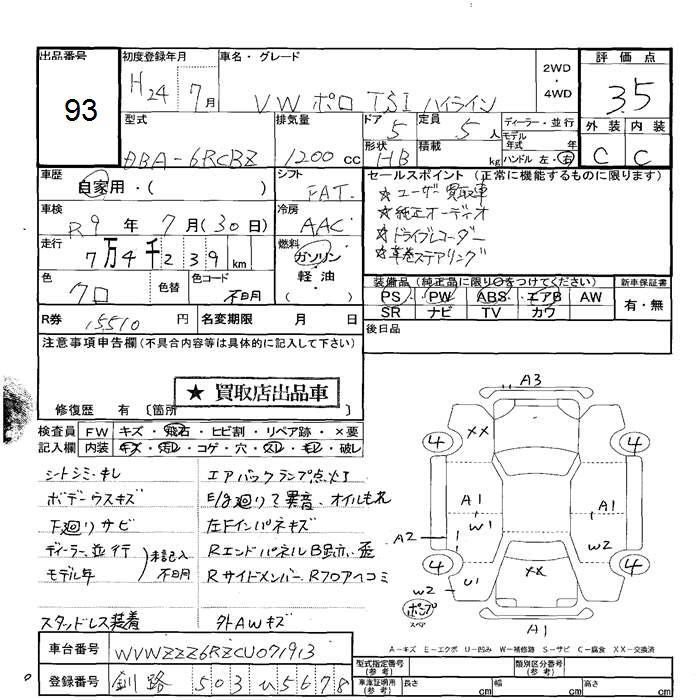 出品番号
93
初度登録年月
H24 7月
車名・グレード
VW ポロ TSI ハイライン
2WD
・
4WD
評価点
3.5
外装 内装
C C
型式
DBA-6RCBZ
排気量
1200 cc
ドア
5
定員
5 人
形状
HB
積載
kg
ディーラー・並行
モデル年式 年
ハンドル 左・右
車歴
自家用・( )
シフト
FAT
車検
R9 年 7月(30日)
冷房
AAC
走行
7万4千239 km
燃料
ガソリン
軽油
( )
色
クロ
色替
色コード
不明
セールスポイント (正常に機能するものに限ります)
☆ユーザー買取車
☆純正オーディオ
☆ドライブレコーダー
☆革巻ステアリング
装備品 (純正品に限り○をつけてください)
PS PW ABS エアB AW
SR ナビ TV カワ
新車保証書
有・無
R券 15510 円
名変期限 月 日
後日品
注意事項申告欄(不具合内容等は具体的に記入して下さい)
★ 買取店出品車
修復歴 有 〔箇所
検査員記入欄
FW キズ・飛石・ヒビ割・リペア跡・×要
内装 キズ・汚レ・コゲ・穴・スレ・キレ・破レ
シートシミ・キレ
ボデーウスキズ
下廻りサビ
ディーラー、並行
モデル年
未記入
不明
スタッドレス装着
エアバックランプ点灯
E/g廻りで異音、オイルもれ
左Fインパネキズ
RエンドパネルB跡小歪
Rサイドメンバー、Rフロアヘコミ
外AWキズ
A3
XX
4
4
A1
W1
A2
A1
W2
4
4
U1
W2
XX
A1
ポンプ
スペア
A-キズ E-エクボ U-凹み W-補修跡 S-サビ C-腐食 XX-交換済
車台番号
WVWZZZ6RZCU071913
登録番号
釧路 503 ひ 5678
型式指定番号(参考)
類別区分番号(参考)
車庫証明用(参考)
長さ cm
幅 cm
高さ cm